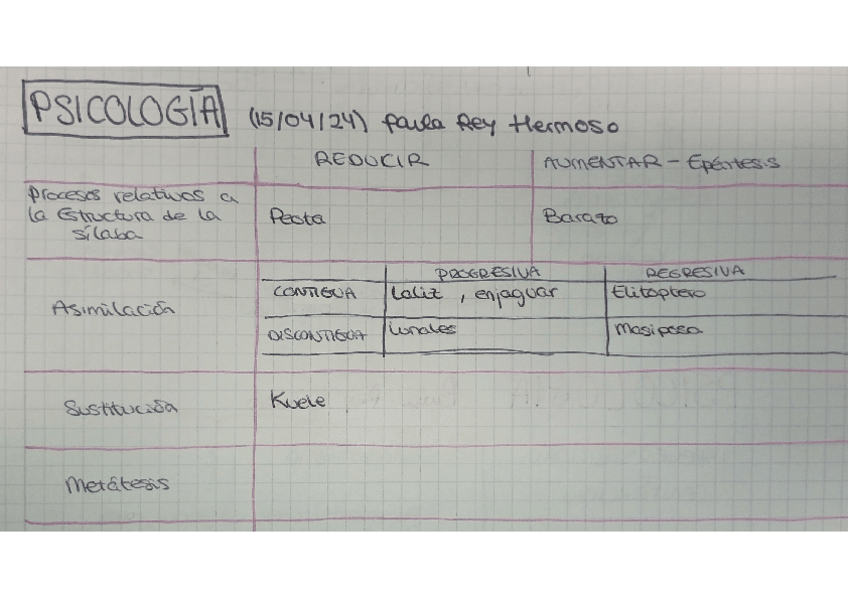 PSICOLOGÍA (15/04/24) Paula Rey Hermoso
REDUCIR AUMENTAR - Epéntesis
Procesos relativos a
la Estructura de la
sílaba
Peota Barato
PROGRESIVA REGRESIVA
Asimilación
CONTIGUA Laliz, enjaguar Elitoptero
DISCONTIGUA Lunales Masiposa
Sustitución Kuele
Metátesis